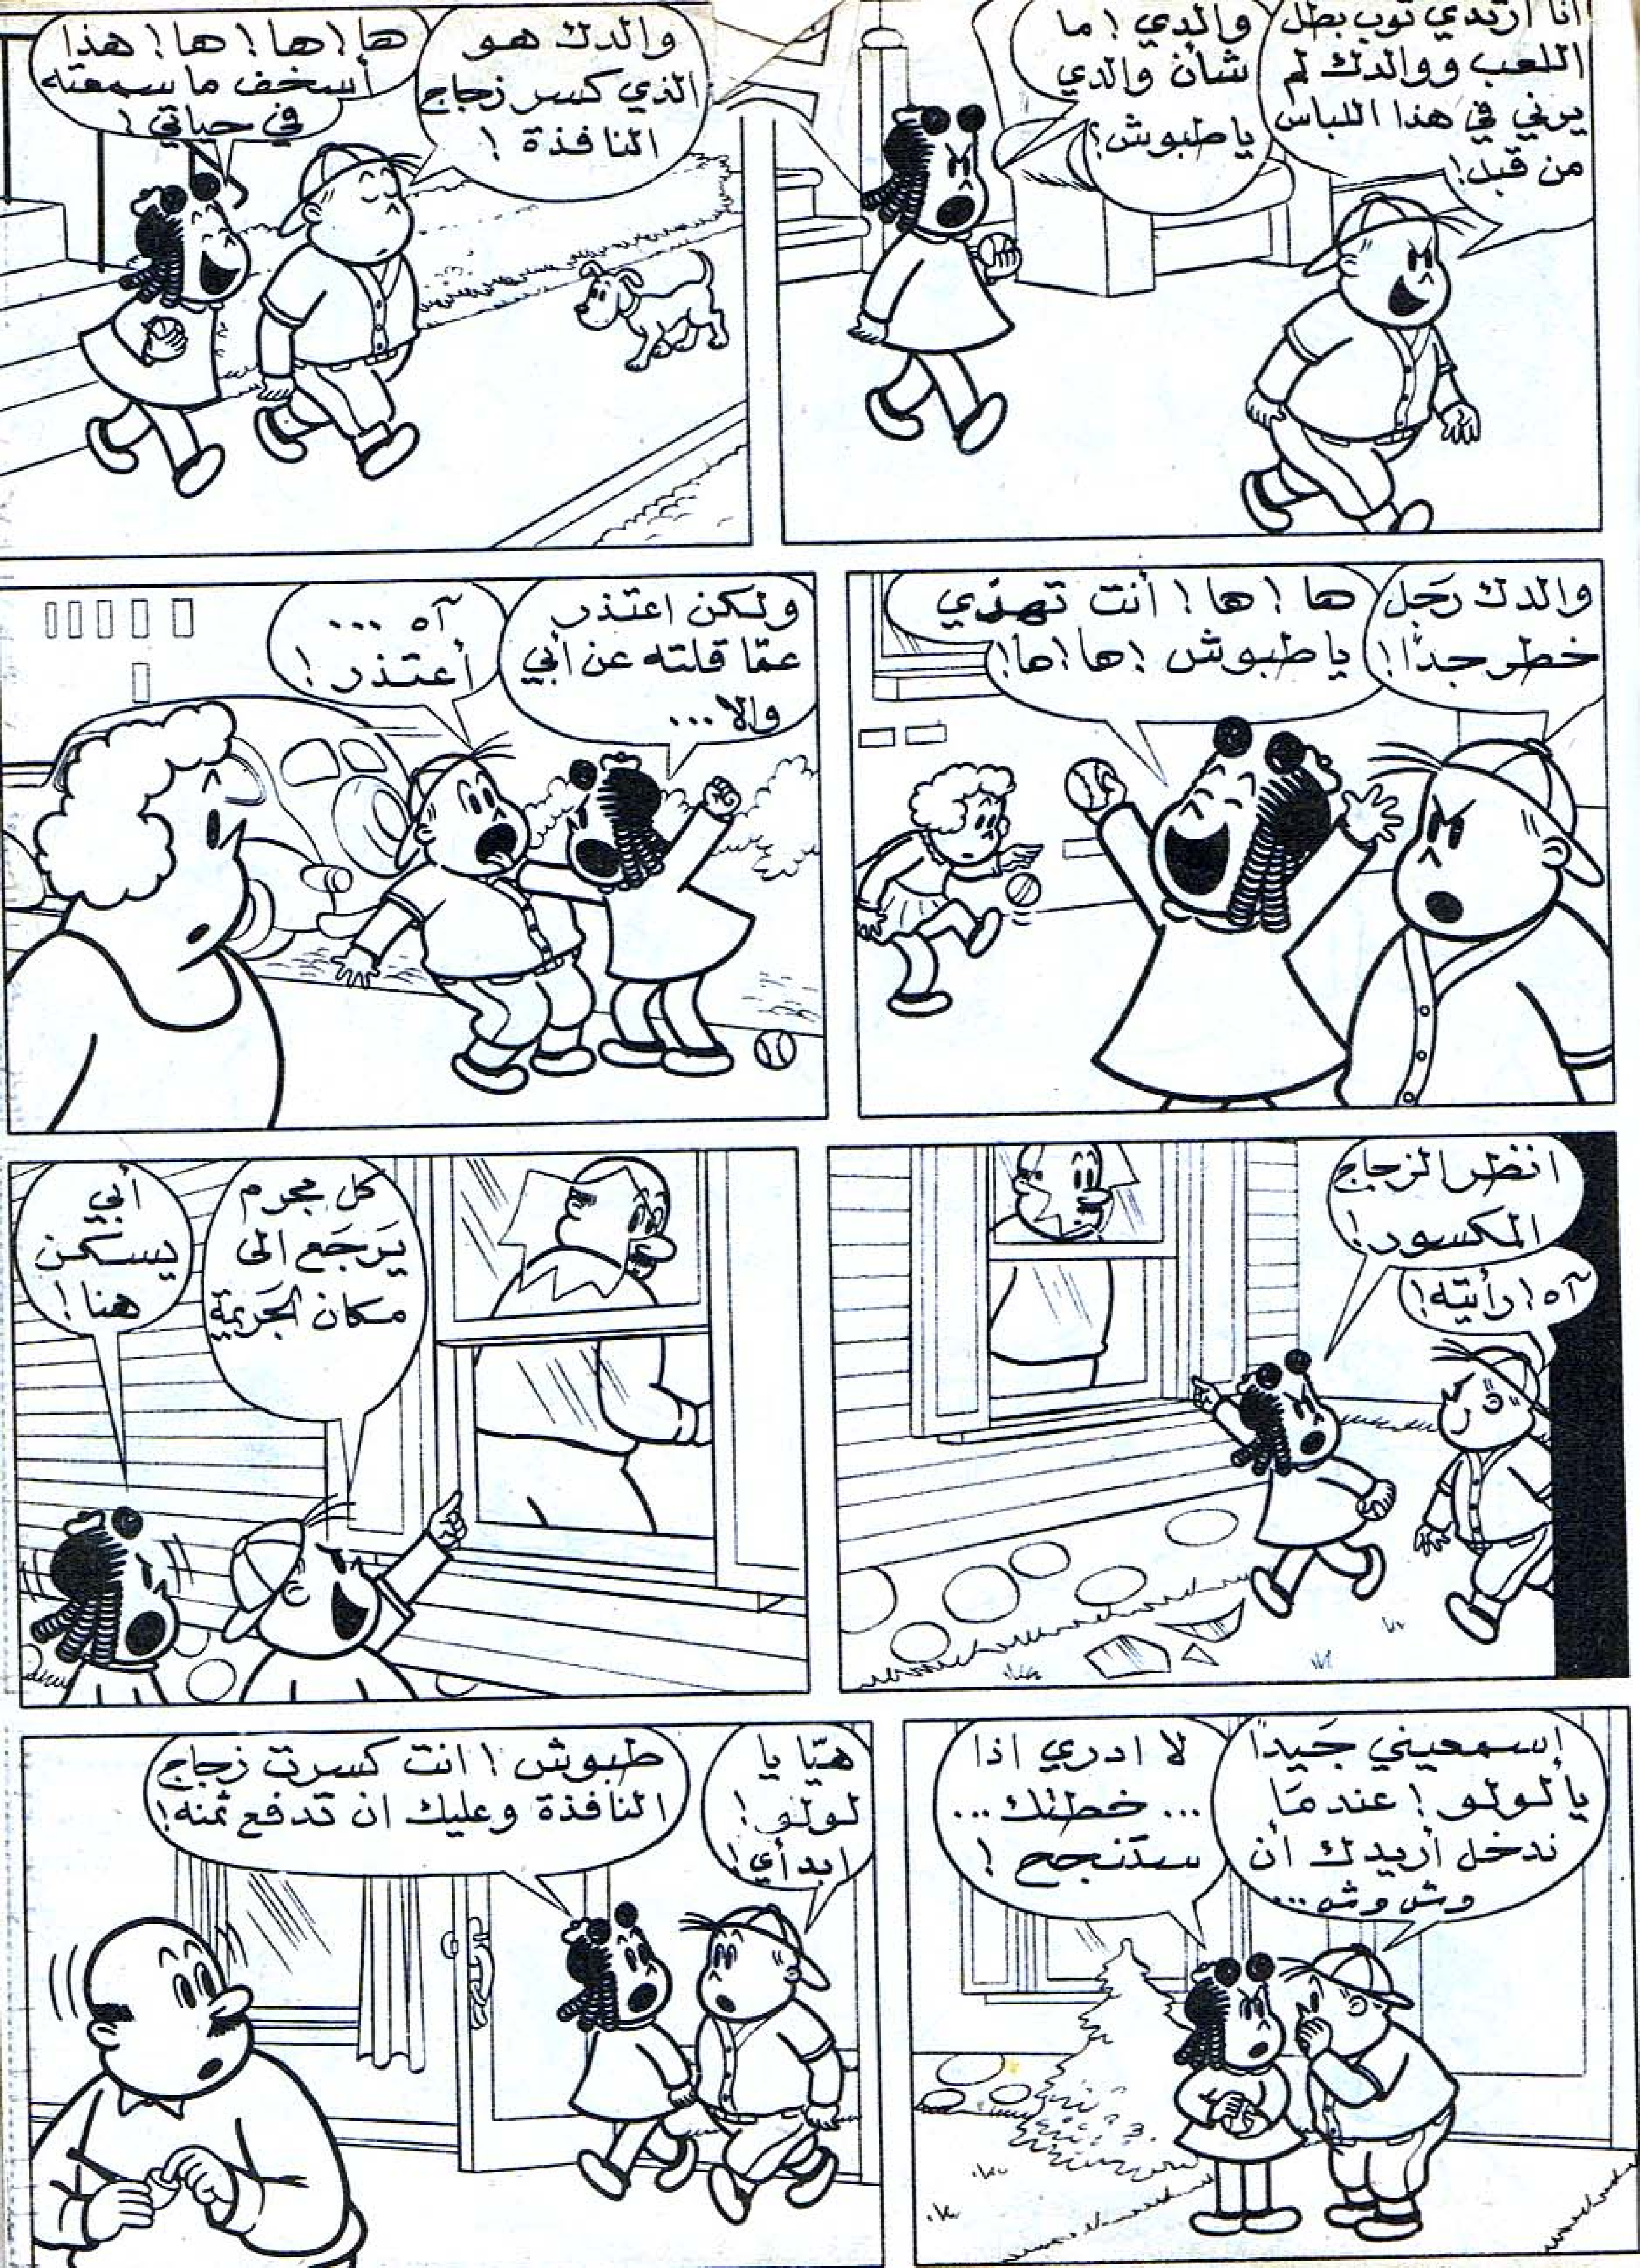 انا أرتدي ثوب بطل
اللعب ووالدك لم
يرني في هذا اللباس
من قبل!
والدي! ما
شأن والدي
يا طبوش؟
والدك هو
الذي كسر زجاج
النافذة!
ها! ها! ها! هذا
أسخف ما سمعته
في حياتي!
والدك رَجل
خطر جدًّا!
ها! ها! أنت تهذي
يا طبوش! ها! ها!
ولكن اعتذر
عمّا قلته عن أبي
والا...
آه ...
أعتذر!
انظر الزجاج
المكسور!
آه! رأيته!
كل مجرم
يَرجَع الى
مكان الجَريمة
أبي
يسكن
هنا!
إسمعيني جَيداً
يا لولو! عندمَا
ندخل أريدك أن
وش وش ...
لا ادري اذا
... خطتك ...
ستنجح!
هيّا يا
لولو!
ابدأي!
طبوش! انت كسرت زجاج
النافذة وعليك ان تدفع ثمنه!